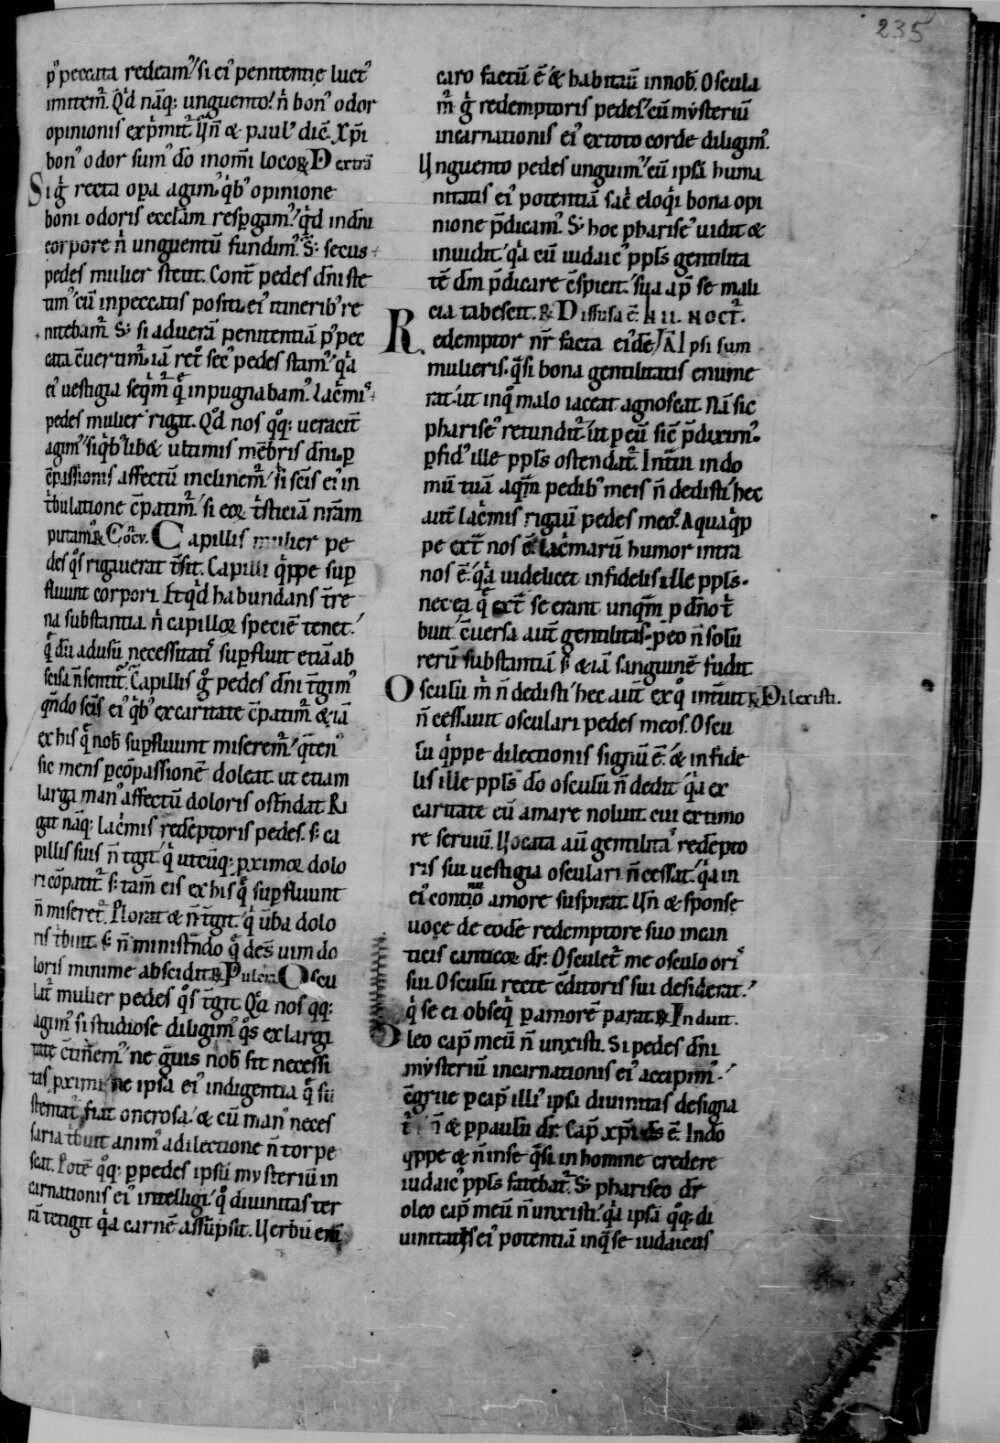 235
p̾ peccata redeam᷒ / si ei᷒ penitentię luct᷒
imitem᷑. Qͥd nāq; unguento / n̄ bon᷒ odor
opinionis exp̄mit᷑. Uñ & paul᷒ dic̄. Xp̄i
bon᷒ odor sum᷒ dō in om̄i locoꝝ Dextrā
Si gͦ recta oꝑa agim᷒ qͥb᷒ opinione
boni odoris ecclām resꝑgam᷒ / qͥd in dn̄i
corpore n̄ unguentū fundim᷒. S; secus
pedes mulier stetit. Contͣ pedes dn̄i ste
tim᷒ cū in peccatis positi ei᷒ itinerib᷒ re
nitebam᷑. S; si ad uerā penitentiā p᷒ pec
cata c̄uertim᷑ iā retͦ sec᷒ pedes stam᷒ / qͥa
ei᷒ uestigia seqͥm᷑ qͥ inpugnabam᷒. Lac̄mis
pedes mulier rigat. Qͦd nos qͦq; ueracit̄
agim᷒ / si qͥb᷒libet ultimis mēbris dn̄i ꝑ
c̄passionis affectū inclinem᷑ / si sc̄is ei᷒ in
t̄bulatione c̄patim᷑ / si eoꝝ t̄sticiā nr̄am
putam᷒ ꝝ Conv. Capillis mulier pe
des qͦs rigauerat t̄sit. Capilli qͥppe suꝑ
fluunt corpori. Et qͥd habundans t̄re
na substantia n̄ capilloꝝ speciē tenet /
qͥ dū ad usū necessitatis suꝑfluit etiā ab
scisa n̄ sentit᷑. Capillis gͦ pedes dn̄i t̄gim᷒
qn̄do sc̄is ei᷒ qͥb᷒ ex caritate c̄patim᷑ & iā
ex his qͥ nob̄ suꝑfluunt miserem᷑ / qͥten᷒
sic mens ꝑ cōpassionē doleat ut etiam
larga man᷒ affectū doloris ostēdat. Ri
gat nāq; lac̄mis redēptoris pedes. s; ca
pillis suis n̄ tgit / qͥ utcūq; ꝓximoꝝ dolo
ri cōpatit᷑ s; tam̄ eis ex his qͥ suꝑfluunt
n̄ miseret᷑. Plorat & n̄ tgit. qͥ uba dolo
ris t̄buit. s; n̄ ministrādo qͥ des̄ uim do
loris minime abscidit ꝝ Pulcra Oscu
lat᷑ mulier pedes qͦs tgit. Qͦd nos qͦq;
agim᷒ si studiose diligim᷒ qͦs ex largi
tate c̄tinem᷒ ne gͣuis nob̄ sit necessi
tas ꝓximi / ne ipsa ei᷒ indigentia qͥ su
stentat᷑ fiat onerosa / & cū man᷒ neces
saria t̄buit anim᷒ a dilectione n̄ torpe
scat. Potē qͦq; ꝑ pedes ipsū mysteriū in
carnationis ei᷒ intelligi / qͥ diuinitas ter
rā tetigit qͥa carnē assūpsit. Uerbū eni
caro factū ē & habitauit in nob̄. Oscula
m᷑ gͦ redemptoris pedes / cū mysteriū
incarnationis ei᷒ ex toto corde diligim᷒.
Unguento pedes unguim᷒ / cū ipsā huma
nitatis ei᷒ potentiā sac̄ eloqͥi bona opi
nione p̄dicam᷒. S; hoc pharise᷒ uidit &
inuidit / qͥa cū iudaic᷒ ppl̄s gentilita
tē dm̄ p̄dicare c̄spicit / sua apͩ se mali
cia tabescit. ꝝ Diffusa ē. IN II. NOCT.
Redemptor nr̄ facta eiꝰdē / A Ipsi sum
mulieris qͣsi bona gentilitatis enume
rat / ut in qͦ malo iaceat agnoscat. Nā sic
pharise᷒ retundit᷑ / ut ꝑ eū sic̄ p̄dixim᷒
ꝑfid᷒ ille ppl̄s ostendat᷑. Intͣui in do
mū tuā aqͣm pedib᷒ meis n̄ dedisti / hec
aut̄ lac̄mis rigauit pedes meos. Aqua qͥp
pe ext̄ nos ē. lac̄marū humor intra
nos ē / qͥa uidelicet infidelis ille ppl̄s
nec ea qͥ ext̄ se erant unqͣm ꝑ dn̄o t̄
buit / c̄uersa aut̄ gentilitas ꝑ eo n̄ solū
rerū substantiā s; & iā sanguinē fudit.
Osculū m̄ n̄ dedisti / hec aut̄ ex qͦ intͣuit ꝝ Dilexisti.
n̄ cessauit osculari pedes meos. Oscu
lū qͥppe dilectionis signū ē. & infide
lis ille ppl̄s dō osculū n̄ dedit qͥa ex
caritate eū amare noluit cui ex timo
re seruiit. Uocata aut̄ gentilitas redēpto
ris sui uestigia osculari n̄ cessat / qͥa in
ei᷒ continuo amore suspirat. Uñ & sponsę
uoce de eodē redemptore suo in can
ticis canticoꝝ dr̄. Osculet᷑ me osculo oris
sui. Osculū recte c̄ditoris sui desiderat /
qͥ se ei obseqͥ ꝑ amorē parat ꝝ Induit.
Oleo capͩ meū n̄ unxisti. Si pedes dn̄i
mysteriū incarnationis ei᷒ accipim᷒ /
c̄grue ꝑ capͩ illi᷒ ipsa diuinitas designa
t᷑. Uñ & ꝑ paulū dr̄. Capͩ xpi ds̄ ē. In dō
qͥppe & n̄ in se qͣsi in homine credere
iudaic᷒ ppl̄s fatebat᷑. S; phariseo dr̄
oleo capͩ meū n̄ unxisti / qͥa ipsā qͦq; di
uinitatis ei᷒ potentiā in qͣ se iudaicus